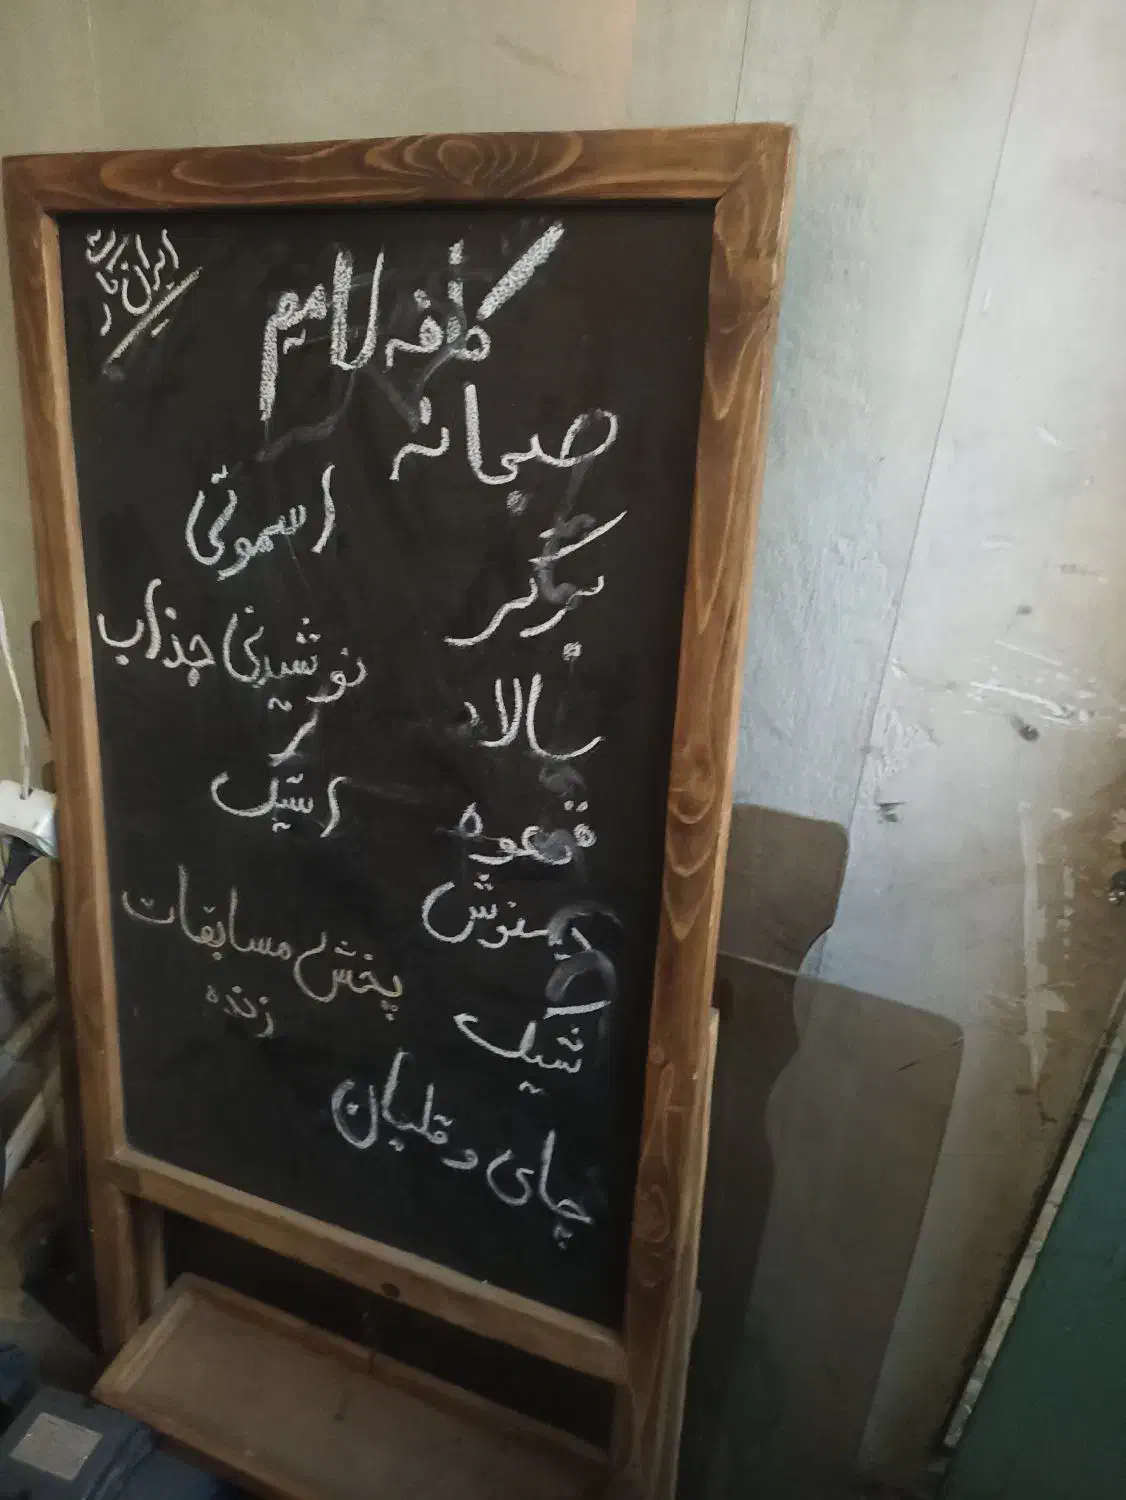 ایران کارت
کافه لامیم
صبحانه
برگر
سالاد
قهوه
دمنوش
شیک
چای و قلیان
اسموتی
نوشیدنی جذاب
تر
استیک
پخش مسابقات
زنده